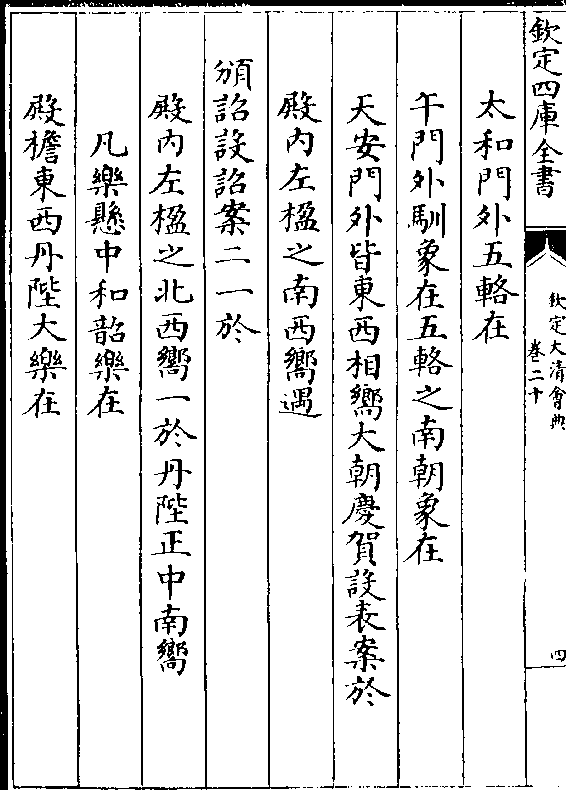 欽定四庫全書
欽定大清會典
卷二十
四
太和門外五輅在
午門外馴象在五輅之南朝象在
天安門外皆東西相嚮大朝慶賀設表案於
殿内左楹之南西嚮遇
頒詔設詔案二一於
殿内左楹之北西嚮一於丹陛正中南嚮
凡樂懸中和韶樂在
殿檐東西丹陛大樂在